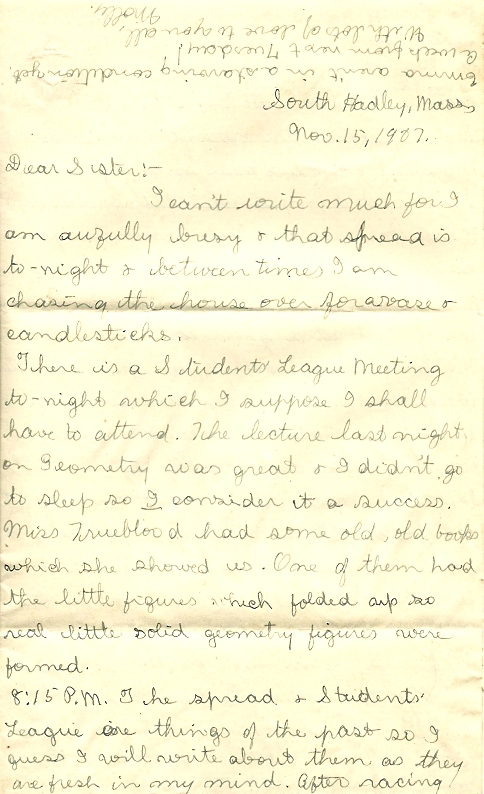 South Hadley, Mass,
Nov. 15, 1907.
Dear Sister:-
I can't write much for I
am awfully busy & that spread is
to-night & between times I am
chasing the house over for a vase &
candlesticks.
There is a Students' League Meeting
to-night which I suppose I shall
have to attend. The lecture last night
on Geometry was great & I didn't go
to sleep so I consider it a success.
Miss Trueblood had some old, old books
which she showed us. One of them had
the little figures which folded up so
real little solid geometry figures were
formed.
8:15 P.M. The spread & Students'
League are things of the past so I
guess I will write about them as they
are fresh in my mind. After racing
Emma aren't in a starving condition yet.
A week from next Tuesday!
With lots of love to you all,
Molly.